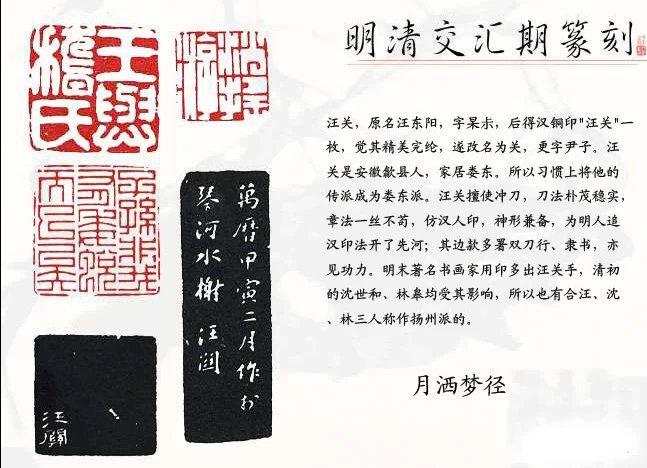 明清交汇期篆刻
汪关，原名汪东阳，字杲尗，后得汉铜印"汪关"一
枚，觉其精美完纶，遂改名为关，更字尹子。汪
关是安徽歙县人，家居娄东。所以习惯上将他的
传派成为娄东派。汪关擅使冲刀，刀法朴茂稳实，
章法一丝不苟，仿汉人印，神形兼备，为明人追
汉印法开了先河；其边款多署双刀行、隶书，亦
见功力。明末著名书画家用印多出汪关手，清初
的沈世和、林皋均受其影响，所以也有合汪、沈
、林三人称作扬州派的。
月洒梦径
萬曆甲寅二月作於
琴河水榭 汪關
汪關